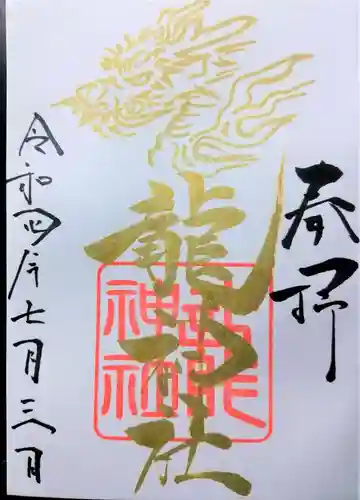 奉拝
龍神社
龍神社
令和四年七月三日